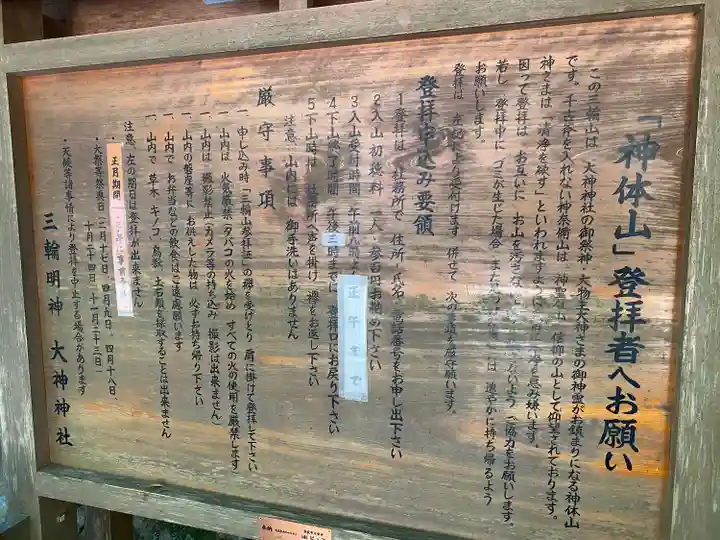 「神体山」登拝者へお願い
この三輪山は 大神神社の御祭神・大物主大神さまの御神霊がお鎮まりになる神体山
です。千古斧を入れない神奈備山は 神霊の山 信仰の山として仰望されております。
神さまは「清浄を欲す」といわれますように 不浄を忌み嫌います。
因って登拝は お互いに お山を汚さない ようご協力をお願いします。
若し 登拝中に ゴミが生じた場合 また には 速やかに持ち帰るよう
お願いします。
登拝は 左記により受付けます 併せて 次の事項を厳守願います。
登拝申込み要領
1 登拝は 社務所で 住所・氏名・電話番号をお申し出下さい
2 入山初穂料 一人・参百円お納め下さい
3 入山受付時間 午前九時 正午まで
4 下山完了時間 午後三時までに 登拝口にお戻り下さい
5 下山時は 社務所へ声を掛け 襷をお返し下さい
注意 山内には 御手洗いはありません
厳守事項
一、申し込み時「三輪山参拝証」の襷を受けとり 肩に掛けて登拝して下さい
一、山内は 火気厳禁(タバコの火を始め すべての火の使用を厳禁します
一、山内は 撮影禁止(カメラ等の持ち込み 撮影は出来ません)
一、山内の磐座等に お供えした物は 必ずお持ち帰り下さい
一、山内で お弁当などの飲食はご遠慮願います
一、山内で 草木 キノコ 鳥獣 土石類を採取することは出来ません
注意 左の期日は登拝が出来ません
正月期間
・大祭等祭典日(二月十七日、四月九日、四月十八日、
十月二十四日、十一月二十三日)
・天候等諸事情により登拝を中止する場合があります
三輪明神 大神神社
奉納